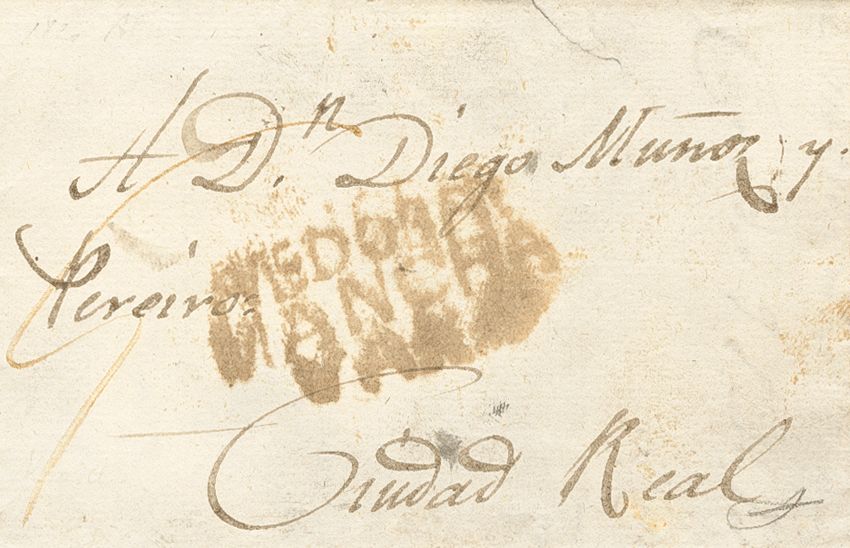 A D.n Diego Muñoz y
Pereiro.
MANCHA
Ciudad Real